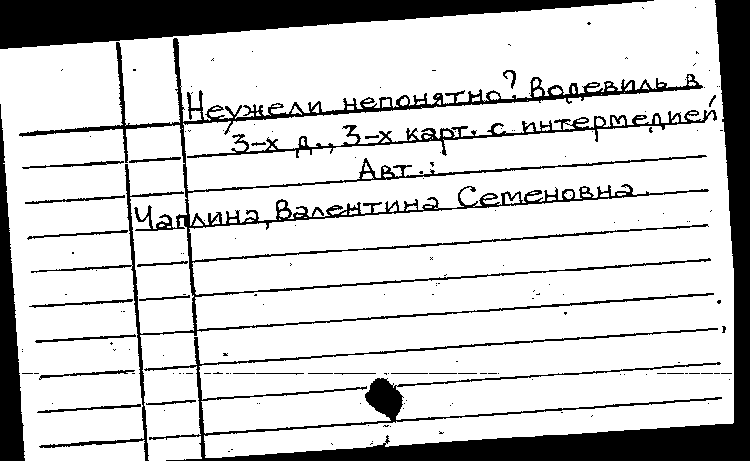 Неужели непонятно? Водевиль в
3-х д., 3-х карт. с интермедией
Авт.:
Чаплина, Валентина Семеновна.